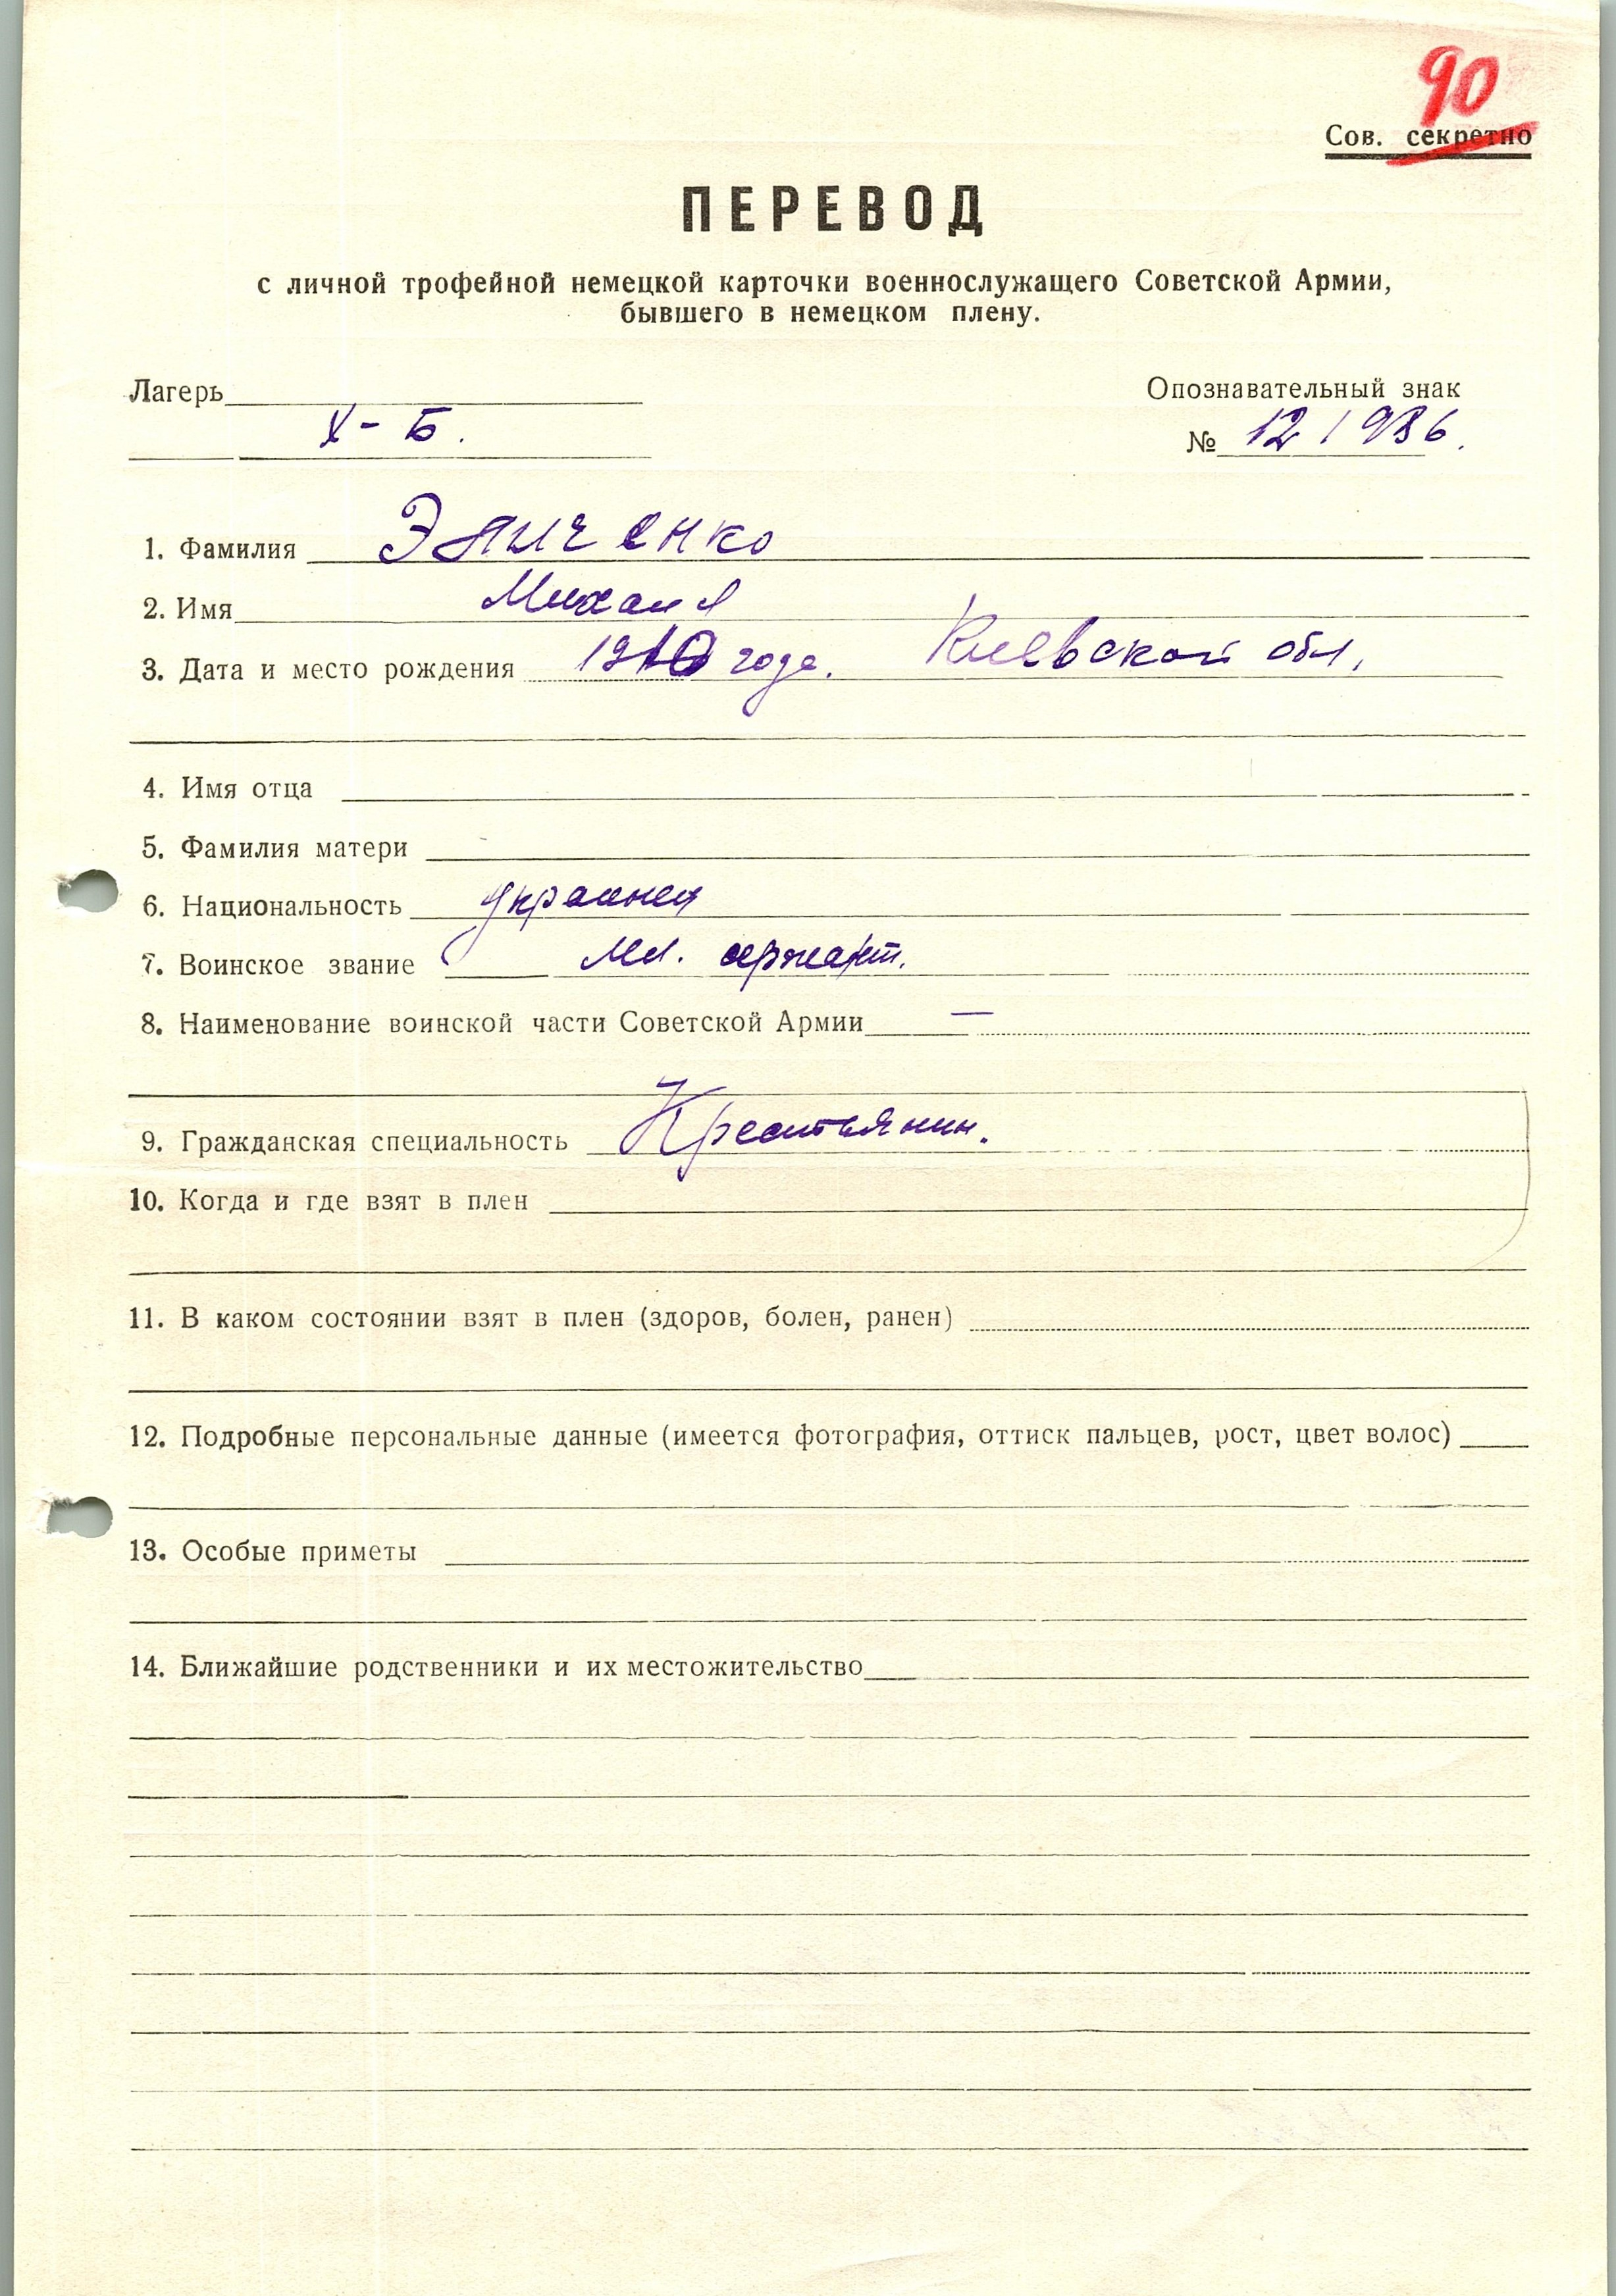 90
Сов. секретно
ПЕРЕВОД
с личной трофейной немецкой карточки военнослужащего Советской Армии,
бывшего в немецком плену.
Лагерь
Опознавательный знак
X - Б.
№ 12 / 986.
1. Фамилия Эпиченко
2. Имя Михаил
3. Дата и место рождения 1910 года. Киевской обл.
4. Имя отца
5. Фамилия матери
6. Национальность украинец
7. Воинское звание Мл. сержант.
8. Наименование воинской части Советской Армии —
9. Гражданская специальность Крестьянин.
10. Когда и где взят в плен
11. В каком состоянии взят в плен (здоров, болен, ранен)
12. Подробные персональные данные (имеется фотография, оттиск пальцев, рост, цвет волос)
13. Особые приметы
14. Ближайшие родственники и их местожительство